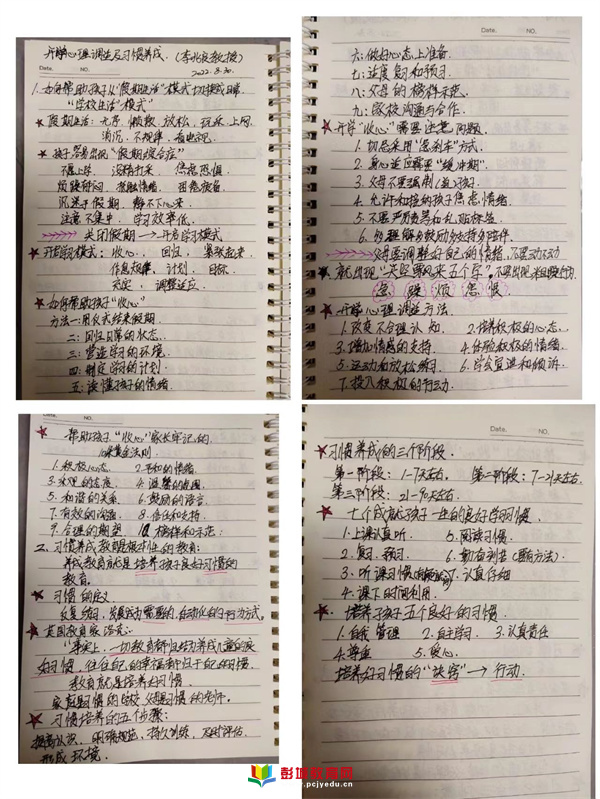 Date. NO.
开学心理调适及习惯养成.（李兆良教授）
2022.8.30.
1.如何帮助孩子从“假期生活”模式切换成日常
“学校生活”模式”
★假期生活：无序 懒散 放松 玩乐 上网
消沉 不规律 看电视
★孩子容易出现“假期综合症”
不愿上学 没精打采 焦虑恐惧
烦躁郁闷 抵触情绪 困倦疲惫
沉迷于假期 静不下心来
注意不集中 学习效率低.
关闭假期→开启学习模式
★开启学习模式：收心、 回归, 紧张起来,
作息规律, 计划, 目标
充实, 调整适应.
★如何帮助孩子“收心”
方法一:用仪式结束假期.
二:回归日常的状态.
三:营造学习的环境.
四:制定学习的计划
五:读懂孩子的情绪
Date. NO.
六:做好心态上准备.
七:适度复习和预习.
八:父母的榜样示范.
九:家校沟通与合作.
★开学“收心”需要注意问题.
1.切忌采用“急刹车”方式
2.身心适应需要“缓冲期”.
3.父母不要强制(逼)孩子
4.允许和接纳孩子焦虑情绪
5.不要严厉责骂和乱贴标签
6.多理解多鼓励多支持多陪伴
父母要调整好自己的情绪,不要动不动
就出现“天空飘来五个字？,不要出现粗暴行为
急 躁 烦 怨 恨
★开学心理调适方法.
1.改变不合理认知. 2.培养积极的心态.
3.增加情感的支持. 4.体验积极的情绪.
5.运动和放松练习. 6.学会宣泄和倾诉.
7.投入积极的行动.
Date. NO.
★帮助孩子“收心”家长牢记的
10条黄金法则
1.积极心态. 2.平和的情绪.
3.乐观的态度. 4.温馨的氛围.
5.和谐的关系 6.鼓励的语言
7.有效的沟通 8.信任和支持.
9.合理的期望 10.榜样和示范.
2.习惯养成教育是根本性的教育:
养成教育就是培养孩子良好习惯的
教育.
★习惯的定义
反复练习,发展成为需要的,自动化的行为方式.
★英国教育家洛克:
“事实上,一切教育都归结为养成儿童的良
好习惯,往往自己的幸福都归于自己的习惯.
教育就是培养好习惯
家庭是习惯的学校,父母是习惯的老师.
★习惯培养的五个步骤:
提高认识,明确规范,持久训练,及时评估.
形成环境.
Date. NO.
★习惯养成的三个阶段.
第一阶段: 1-7天左右. 第二阶段: 7-21天左右
第三阶段: 21-90天左右
★七个成就孩子一生的良好学习习惯.
1.上课认真听. 5.阅读习惯.
2.复习.预习. 6.勤查刻苦(重有方法).
3.听课习惯 7.认真仔细
4.课下时间利用.
★培养孩子五个良好的习惯.
1.自我管理 2.自主学习. 3.认真责任
4.尊重 5.爱心.
培养好习惯的“诀窍”→行动.
彭城教育网
www.pcjyedu.cn